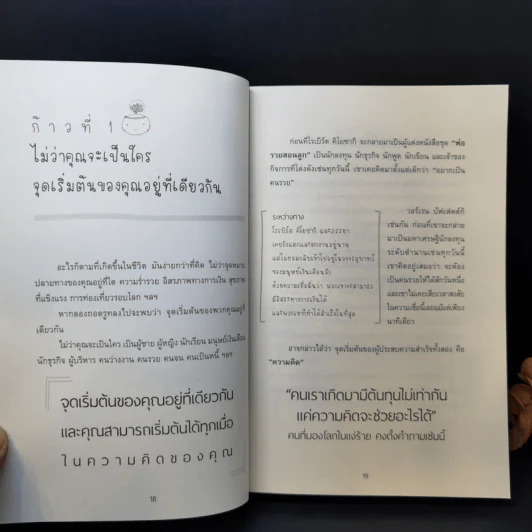 ก้าวที่ 1
ไม่ว่าคุณจะเป็นใคร
จุดเริ่มต้นของคุณอยู่ที่เดียวกัน
อะไรก็ตามที่เกิดขึ้นในชีวิต มันง่ายกว่าที่คิด ไม่ว่าจุดหมาย
ปลายทางของคุณอยู่ที่ใด ความร่ำรวย อิสรภาพทางการเงิน สุขภาพ
ที่แข็งแรง การท่องเที่ยวรอบโลก ฯลฯ
หากลองถอดรูทลงไปจะพบว่า จุดเริ่มต้นของพวกคุณอยู่ที่
เดียวกัน
ไม่ว่าคุณจะเป็นใคร เป็นผู้ชาย ผู้หญิง นักเรียน มนุษย์เงินเดือน
นักธุรกิจ ผู้บริหาร คนว่างงาน คนรวย คนจน คนเป็นหนี้ ฯลฯ
จุดเริ่มต้นของคุณอยู่ที่เดียวกัน
และคุณสามารถเริ่มต้นได้ทุกเมื่อ
ในความคิดของคุณ
18
ก่อนที่โรเบิร์ต คิโยซากิ จะกลายมาเป็นผู้แต่งหนังสือชุด "พ่อ
รวยสอนลูก" เป็นนักลงทุน นักธุรกิจ นักพูด นักเขียน และเจ้าของ
กิจการที่โด่งดังเช่นทุกวันนี้ เขาเคยคิดมาตั้งแต่เด็กว่า "อยากเป็น
คนรวย"
ระหว่างทาง
โรเบิร์ต คิโยซากิ และภรรยา
เคยถังแตกและตกงานอยู่นาน
แต่ไม่ยอมกลับเข้าไปอยู่ในวงจรอุบาทว์
ของมนุษย์เงินเดือนอีก
ด้วยความเชื่อมั่นว่า พวกเขาจะสามารถ
มีอิสรภาพการเงินได้
และพวกเขาก็ทำได้สำเร็จในที่สุด
วอร์เรน บัฟเฟตต์ก็
เช่นกัน ก่อนที่เขาจะกลาย
มาเป็นมหาเศรษฐีนักลงทุน
ระดับตำนานเช่นทุกวันนี้
เขาคิดอยู่เสมอว่า จะต้อง
เป็นคนรวยให้ได้สักวันหนึ่ง
และเขาไม่เคยเสียเวลาสงสัย
ในความเชื่อนี้เลยแม้แต่เพียง
นาทีเดียว
อาจกล่าวได้ว่า จุดเริ่มต้นของผู้ประสบความสำเร็จทั้งสอง คือ
"ความคิด"
"คนเราเกิดมามีต้นทุนไม่เท่ากัน
แค่ความคิดจะช่วยอะไรได้"
คนที่มองโลกในแง่ร้าย คงตั้งคำถามเช่นนี้
19